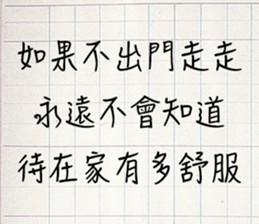 如果不出門走走
永遠不會知道
待在家有多舒服